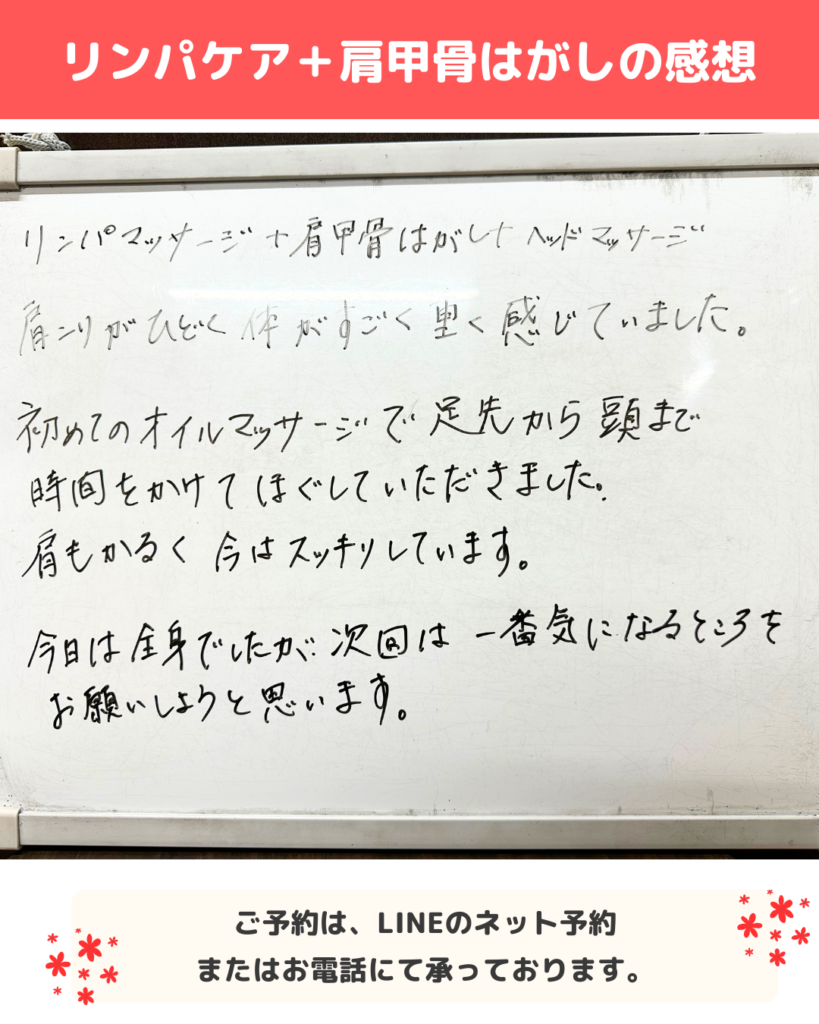 リンパケア＋肩甲骨はがしの感想
リンパマッサージ+肩甲骨はがし+ヘッドマッサージ
肩こりがひどく体がすごく重く感じていました。
初めてのオイルマッサージで足先から頭まで
時間をかけてほぐしていただきました。
肩もかるく今はスッキリしています。
今日は全身でしたが次回は一番気になるところを
お願いしようと思います。
ご予約は、LINEのネット予約
またはお電話にて承っております。